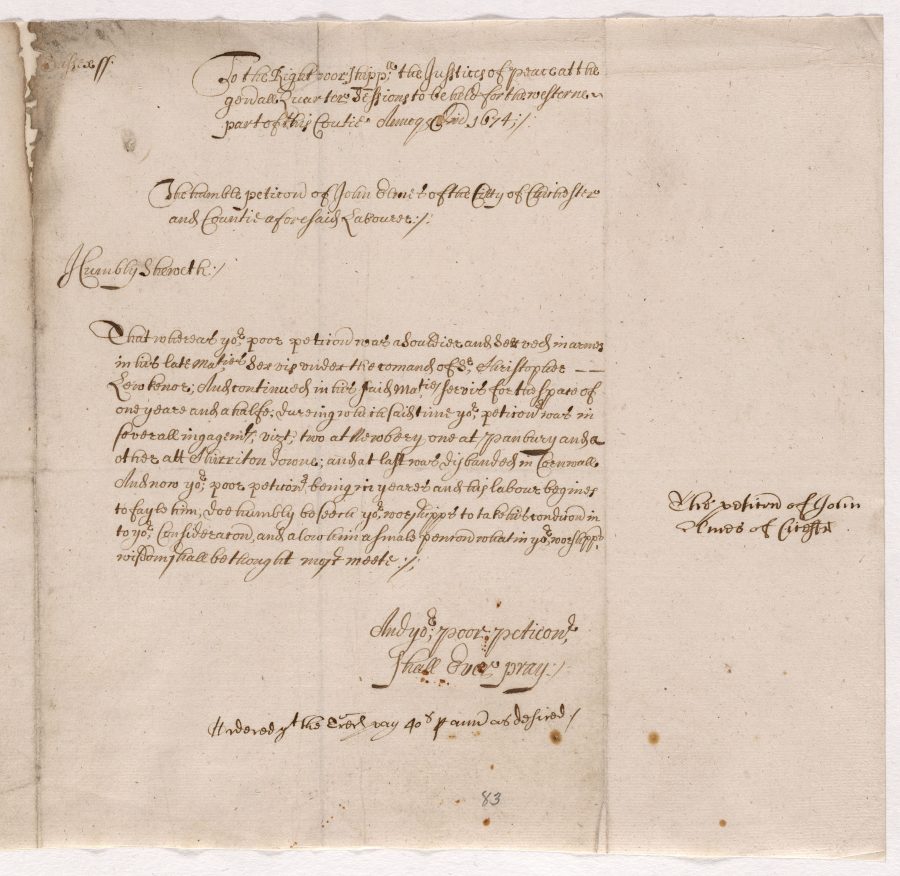 Sussex ss.
To the Right worshipp:ll the Justices of peace at the
gen'all Quarter Sessions to be held for the westerne
part of this Countie Annoq D'ni 1674:/
The humble peticon of John Elmes of the Citty of Chichester
and Countie aforesaid Labourer:/:
Humbly Sheweth:/
That whereas yor: poor peticon'r was a Souldier and Served in armes
in his late Maties Servis under the comand of Sr: Christopher
Lewkenor; And continued in his said Maties servis for the space of
one yeare and a halfe; dureing which said time yor: peticonr was in
severall ingagemts; vizt; two at Newbery one at Panbury and a
other att Chirriton downe; and at last was disbanded in Cornwall
And now yor: poor peticonr being in yeares and his labour begines
to fayle him, doe humbly beseech yor: worshipps to take his condicon in
to yor: Consideracon, and alow him a smale pencon what in yor: worshipps
wisdom shall be thought most meete:/;
And yor: poor peticonr
shall Ever pray:/
Ordered yt the Trer pay 40s p ann' as desired/
83
The peticon of John
Elmes of Cicestr